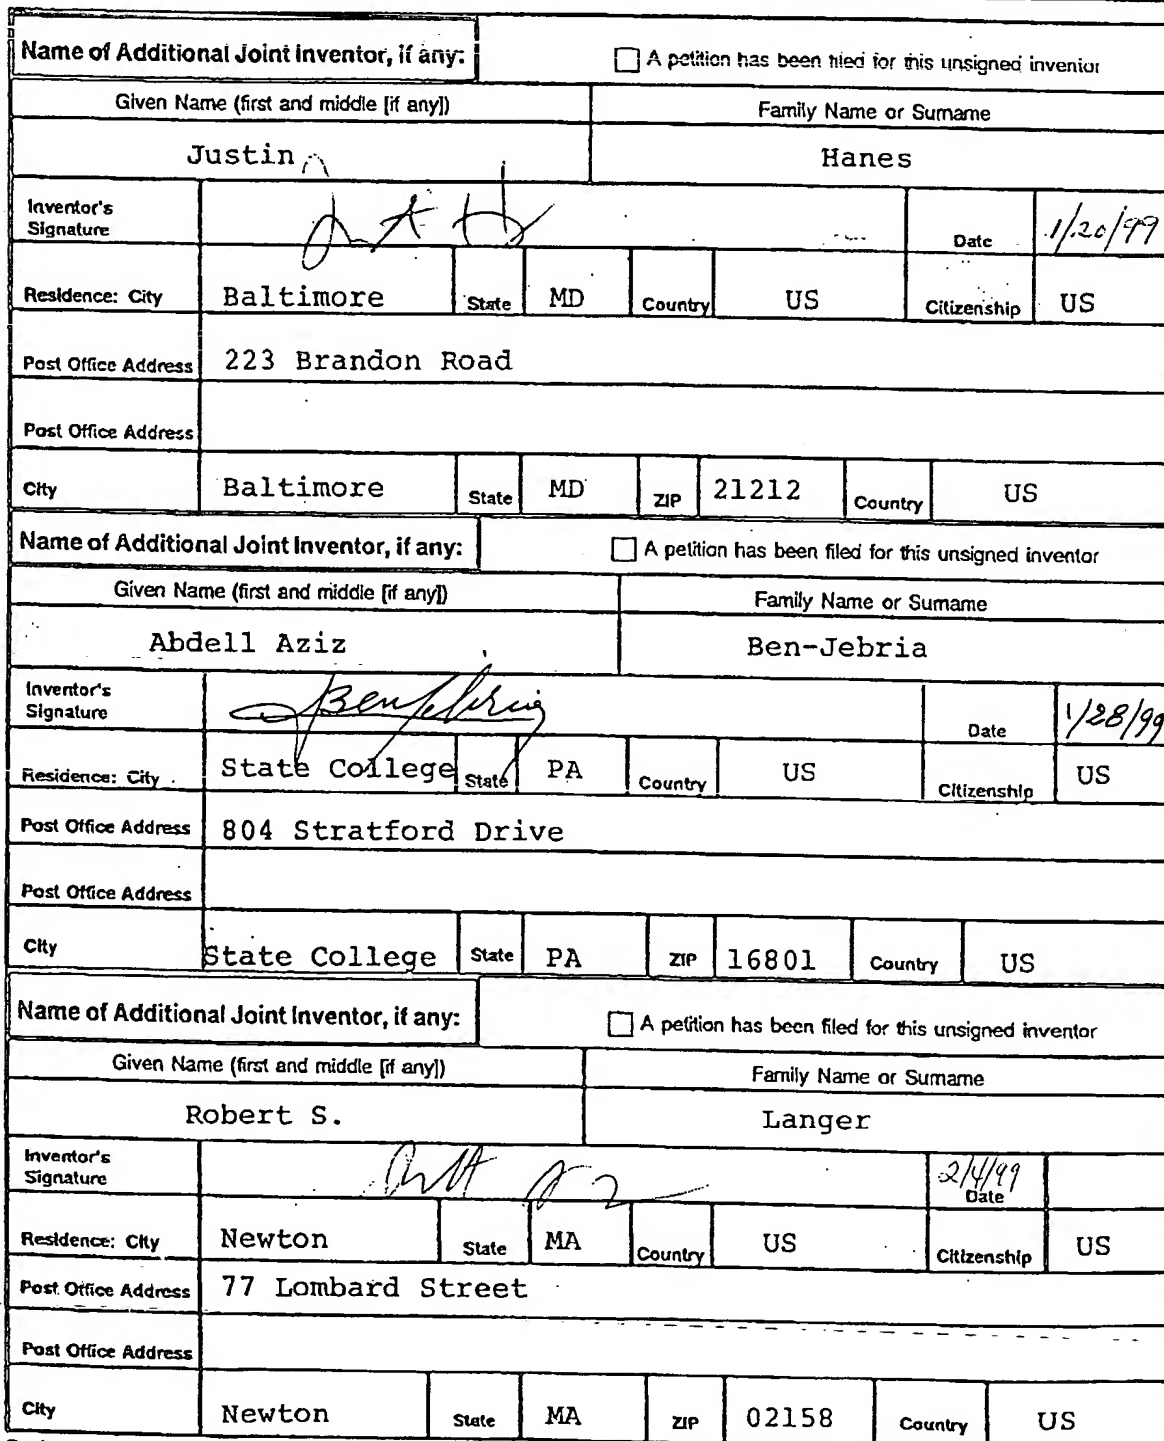 Name of Additional Joint Inventor, if any: A petition has been filed for this unsigned inventor
Given Name (first and middle [if any]) Family Name or Surname
Justin Hanes
Inventor's
Signature Date 1/20/99
Residence: City Baltimore State MD Country US Citizenship US
Post Office Address 223 Brandon Road
Post Office Address
City Baltimore State MD ZIP 21212 Country US
Name of Additional Joint Inventor, if any: A petition has been filed for this unsigned inventor
Given Name (first and middle [if any]) Family Name or Surname
Abdell Aziz Ben-Jebria
Inventor's
Signature BenJebria Date 1/28/99
Residence: City State College State PA Country US Citizenship US
Post Office Address 804 Stratford Drive
Post Office Address
City State College State PA ZIP 16801 Country US
Name of Additional Joint Inventor, if any: A petition has been filed for this unsigned inventor
Given Name (first and middle [if any]) Family Name or Surname
Robert S. Langer
Inventor's
Signature 2/4/99 Date
Residence: City Newton State MA Country US Citizenship US
Post Office Address 77 Lombard Street
Post Office Address
City Newton State MA ZIP 02158 Country US